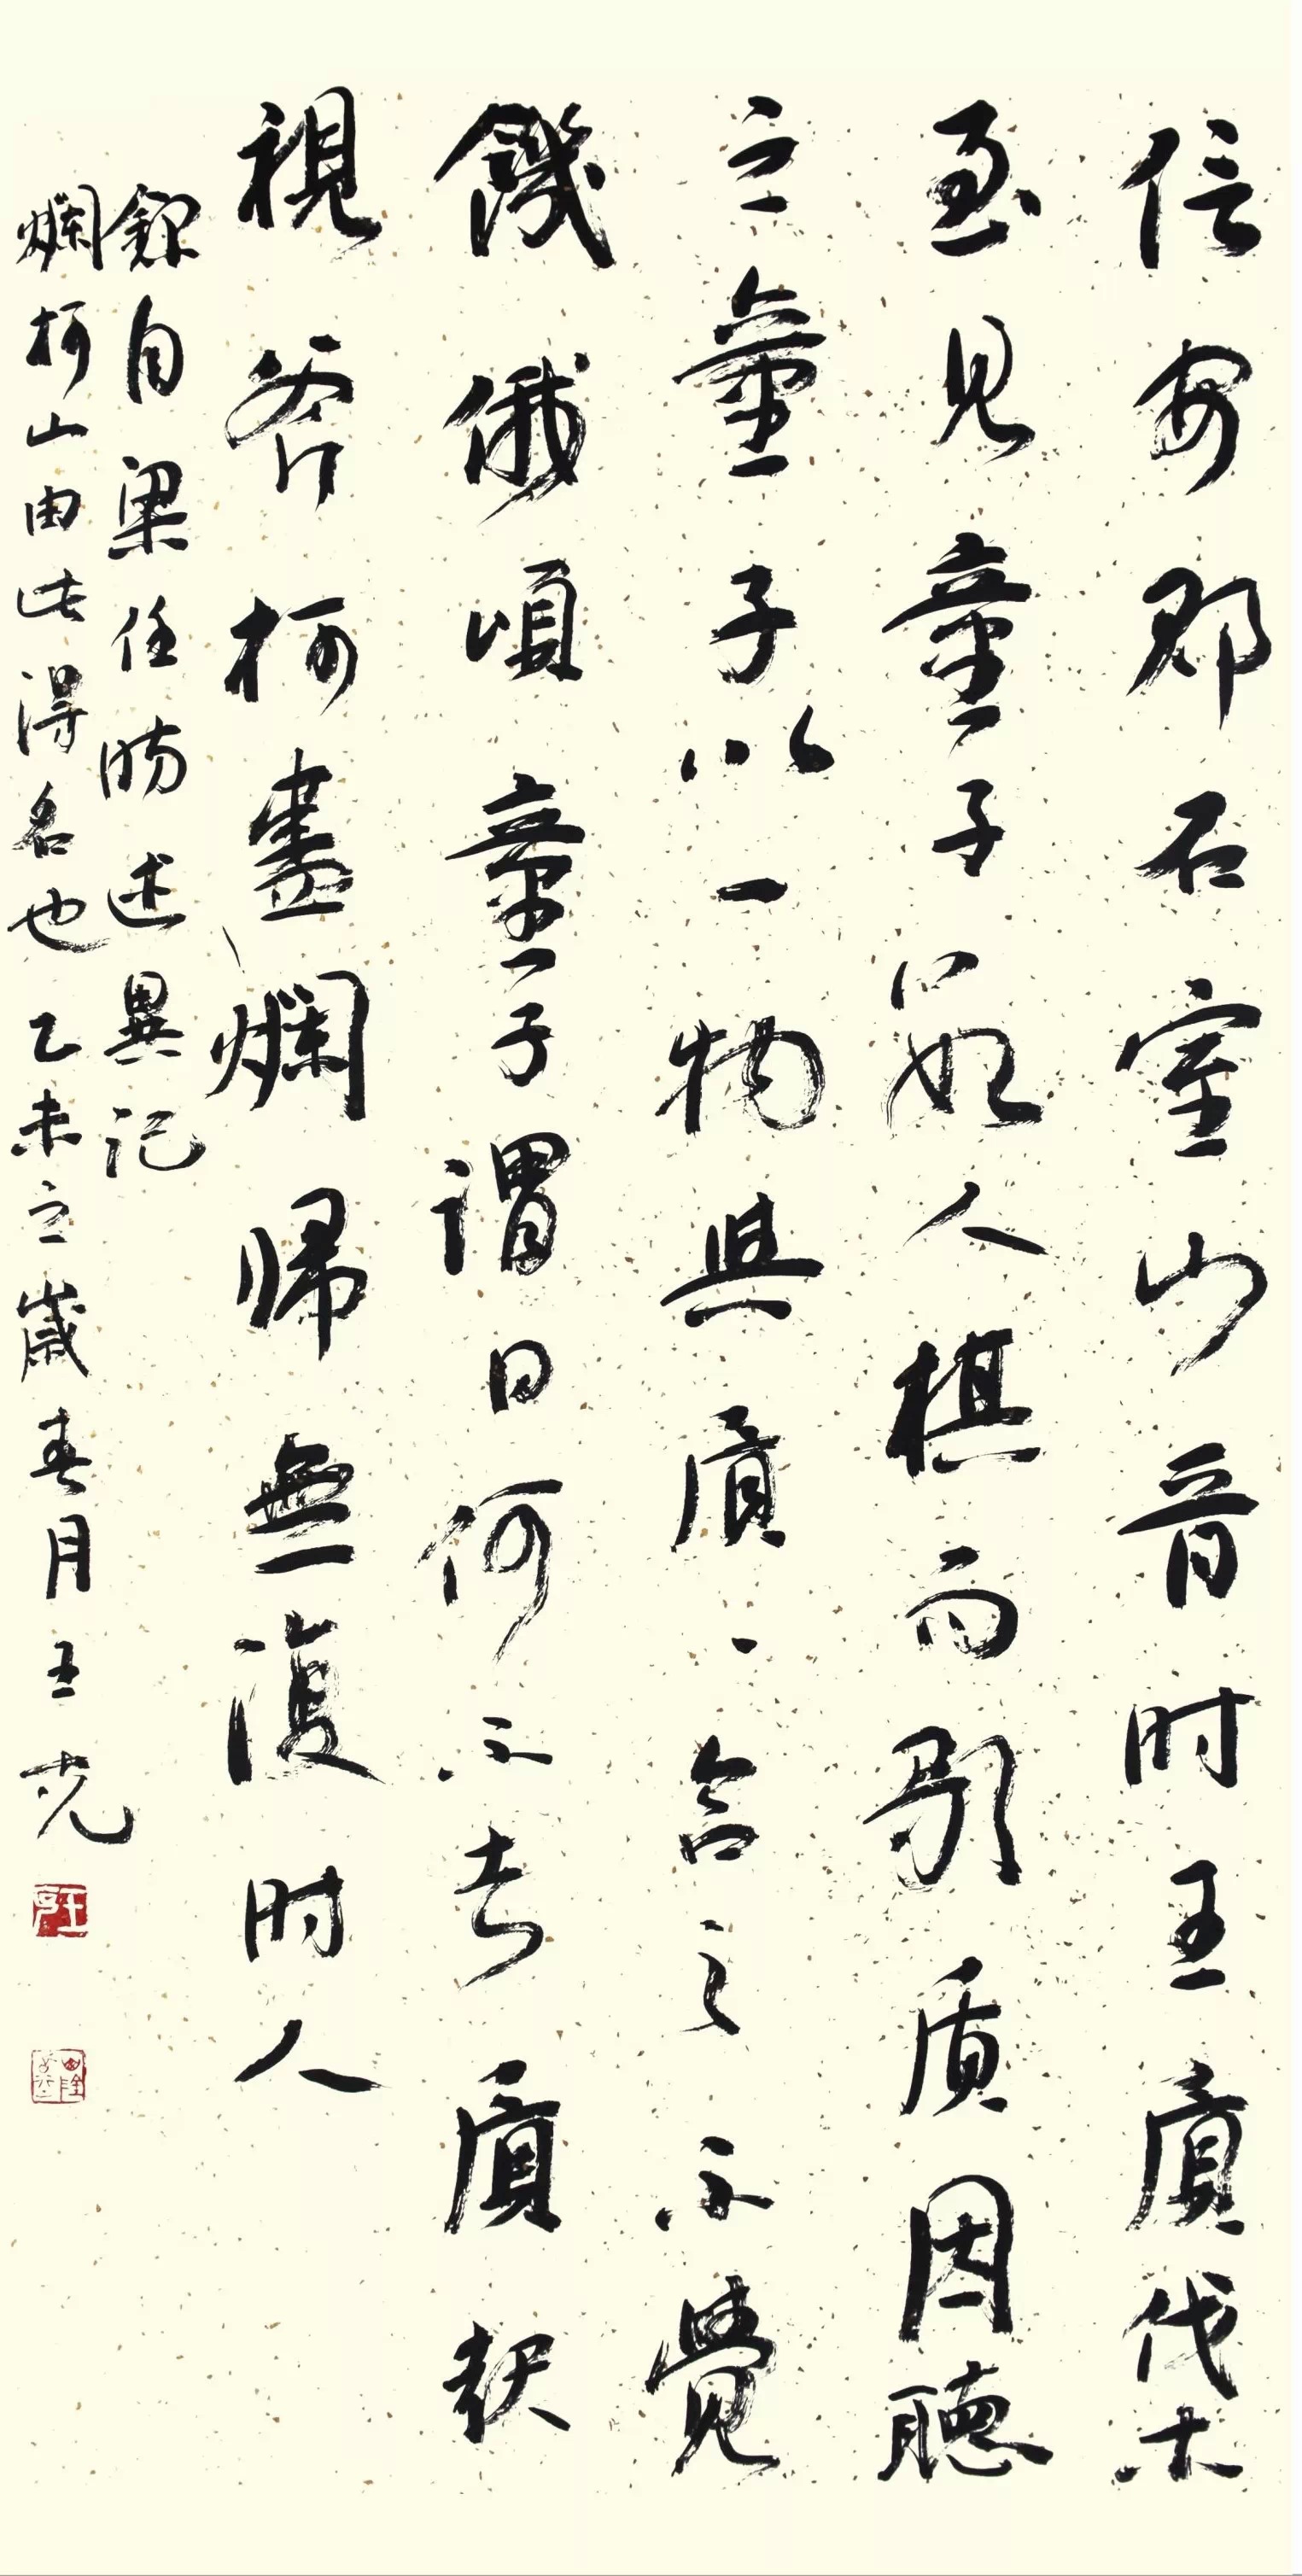 信安郡石室山晋时王質伐木
至見童子數人棋而歌质因聽
之童子以一物與質質含之不覺
饑俄頃童子謂曰何不去質起
視斧柯盡爛歸無復时人
録自梁任昉述異記
爛柯山由此得名也乙未之歲春月王克